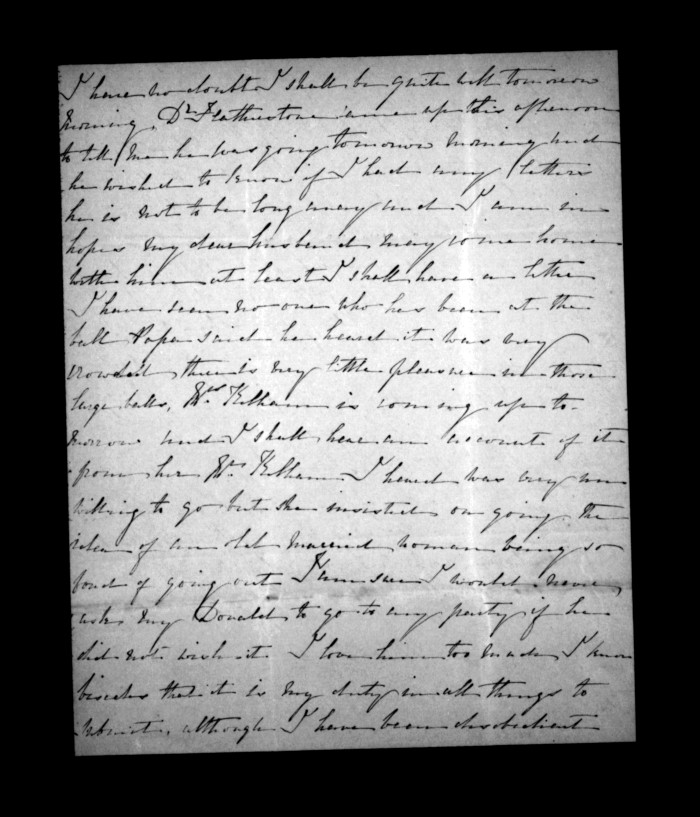 I have no doubt I shall be quite well tomorrow
morning. Dr Featherstone came up this afternoon
to tell me he was going tomorrow morning and
he wished to know if I had any letters
he is not to be long away and I am in
hopes my dear husband may come home
with him at least I shall have a letter
I have seen no one who has been at the
ball Papa said he heard it was very
crowded there is very little pleasure in those
large balls, Mrs Kelham is coming up to-
morrow and I shall hear an account of it
from her Mr Kelham I heard was very un
willing to go but she insisted on going the
idea of an old married woman being so
fond of going out I am sure I would never
ask my Donald to go to any party if he
did not wish it I love him too much, I know
besides that it is my duty in all things to
submit, although I have been disobedient